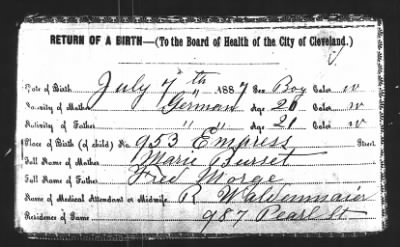 RETURN OF A BIRTH—(To the Board of Health of the City of Cleveland.)
Date of Birth July 7th 1887 Sex Boy Color w
Nativity of Mother German Age 20 Color w
Nativity of Father " " Age 21 Color w
Place of Birth (of child) No 953 Empress Street
Full Name of Mother Marie Busset
Full Name of Father Fred Morge
Name of Medical Attendant or Midwife, R Waldenmaier
Residence of Same 987 Pearl St